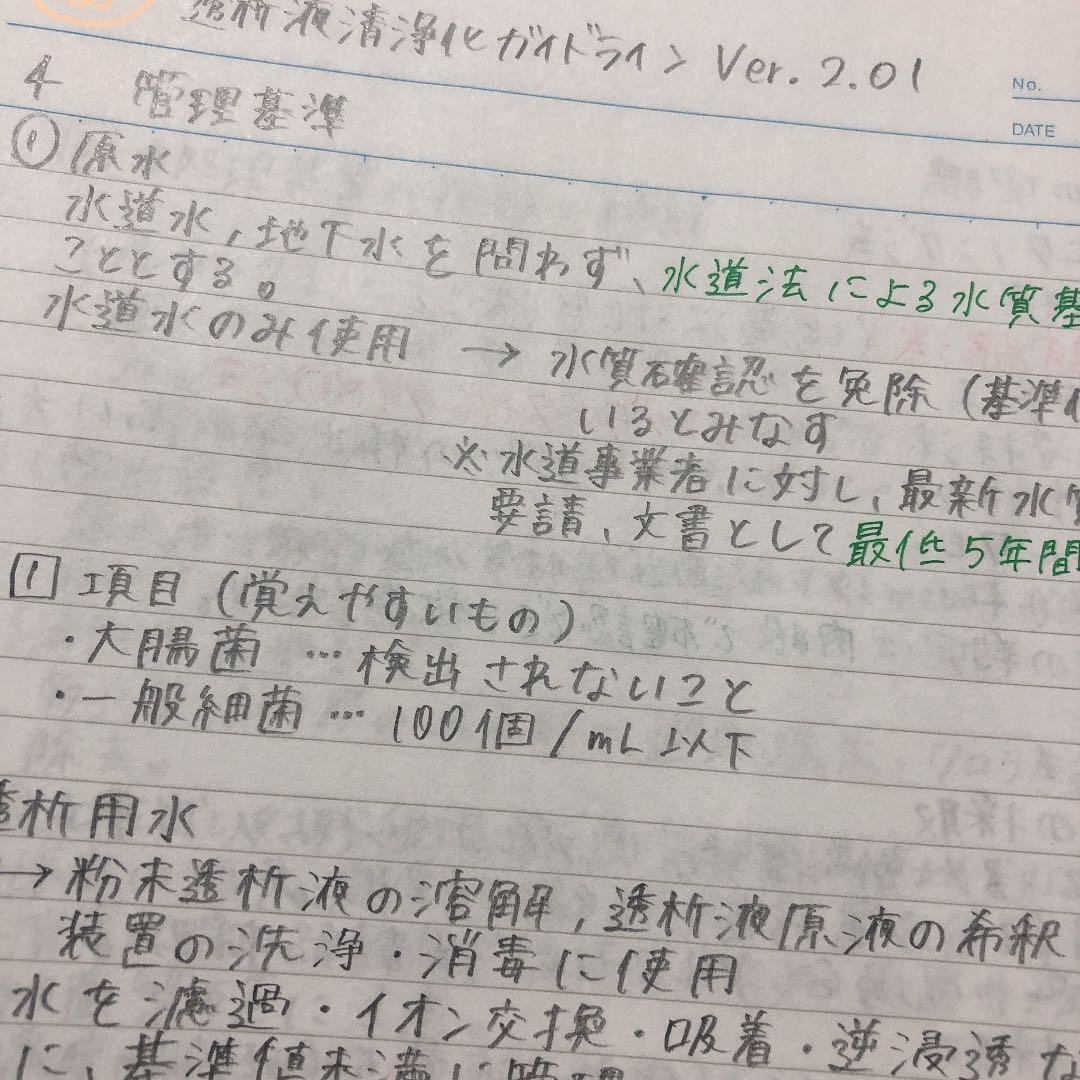 透析液清浄化ガイドライン Ver. 2.01
No.
DATE
4 管理基準
① 原水
水道水,地下水を問わず、水道法による水質基
こととする。
水道水のみ使用 → 水質確認を免除(基準
いるとみなす
※水道事業者に対し、最新水質
要請、文書として最低5年間
1 項目(覚えやすいもの)
・大腸菌 … 検出されないこと
・一般細菌 … 100個/mL以下
透析用水
→粉末透析液の溶解,透析液原液の希釈
装置の洗浄・消毒に使用
水を濾過・イオン交換・吸着・逆浸透な
に、基準値未満に管理